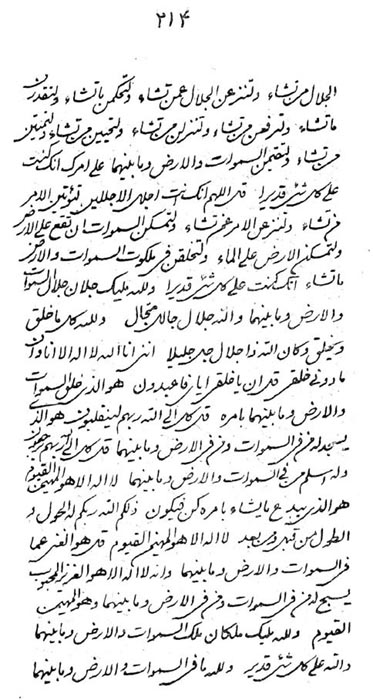 ٢١٤
الجلال من تشاء ولتنزعن الجلال عمن تشاء ولتحكمن ما تشاء ولتقدرن
ما تشاء ولترفعن من تشاء ولتنزلن من تشاء ولتحيين من تشاء ولتميتن
من تشاء ولتقيمن السموات والارض وما بينهما على امرك انك كنت
على كل شئ قديرا قل اللهم انك انت اجلل الاجللين لتؤتين الامر
من تشاء ولتنزعن الامر عمن تشاء ولتمسكن السموات ان تقع على الارض
ولتمسكن الارض على الماء ولتخلقن في ملكوت السموات والارض
ما تشاء انك كنت على كل شئ قديرا ولله مليك جلال جلال السموات
والارض وما بينهما والله جلال جالل ولله كل ما خلق
ويخلق وكان الله ذا جلال جليلا انني انا الله لا اله الا انا وان
ما دوني خلقي قل ان يا خلقي اياي فاعبدون هو الذي خلق السموات
والارض وما بينهما بامره قل كل الى الله ربهم لينقلبون هو الذي
يسجد له من في السموات ومن في الارض وما بينهما قل كل الى الله ربهم يرجعون
وله اسلم من في السموات والارض وما بينهما لا اله الا هو المهيمن القيوم
هو الذي يبدع ما يشاء بامره كن فيكون ذلكم الله ربكم له الحول و
الطول من قبل ومن بعد لا اله الا هو المهيمن القيوم قل هو الغني عما
في السموات والارض وما بينهما وانه لا اله الا هو العزيز المحبوب
يسبح له من في السموات ومن في الارض وما بينهما وهو المهيمن
القيوم ولله مليك ملكان ملك السموات والارض وما بينهما
والله على كل شئ قدير ولله ما في السموات والارض وما بينهما